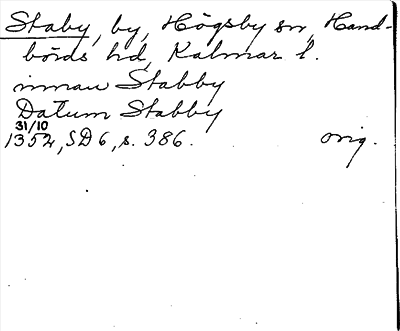 Staby, by, Högsby sn, Hand-
börds hd, Kalmar l.
innan Stabby
Datum Stabby
31/10
1352, SD 6, s. 386. orig.